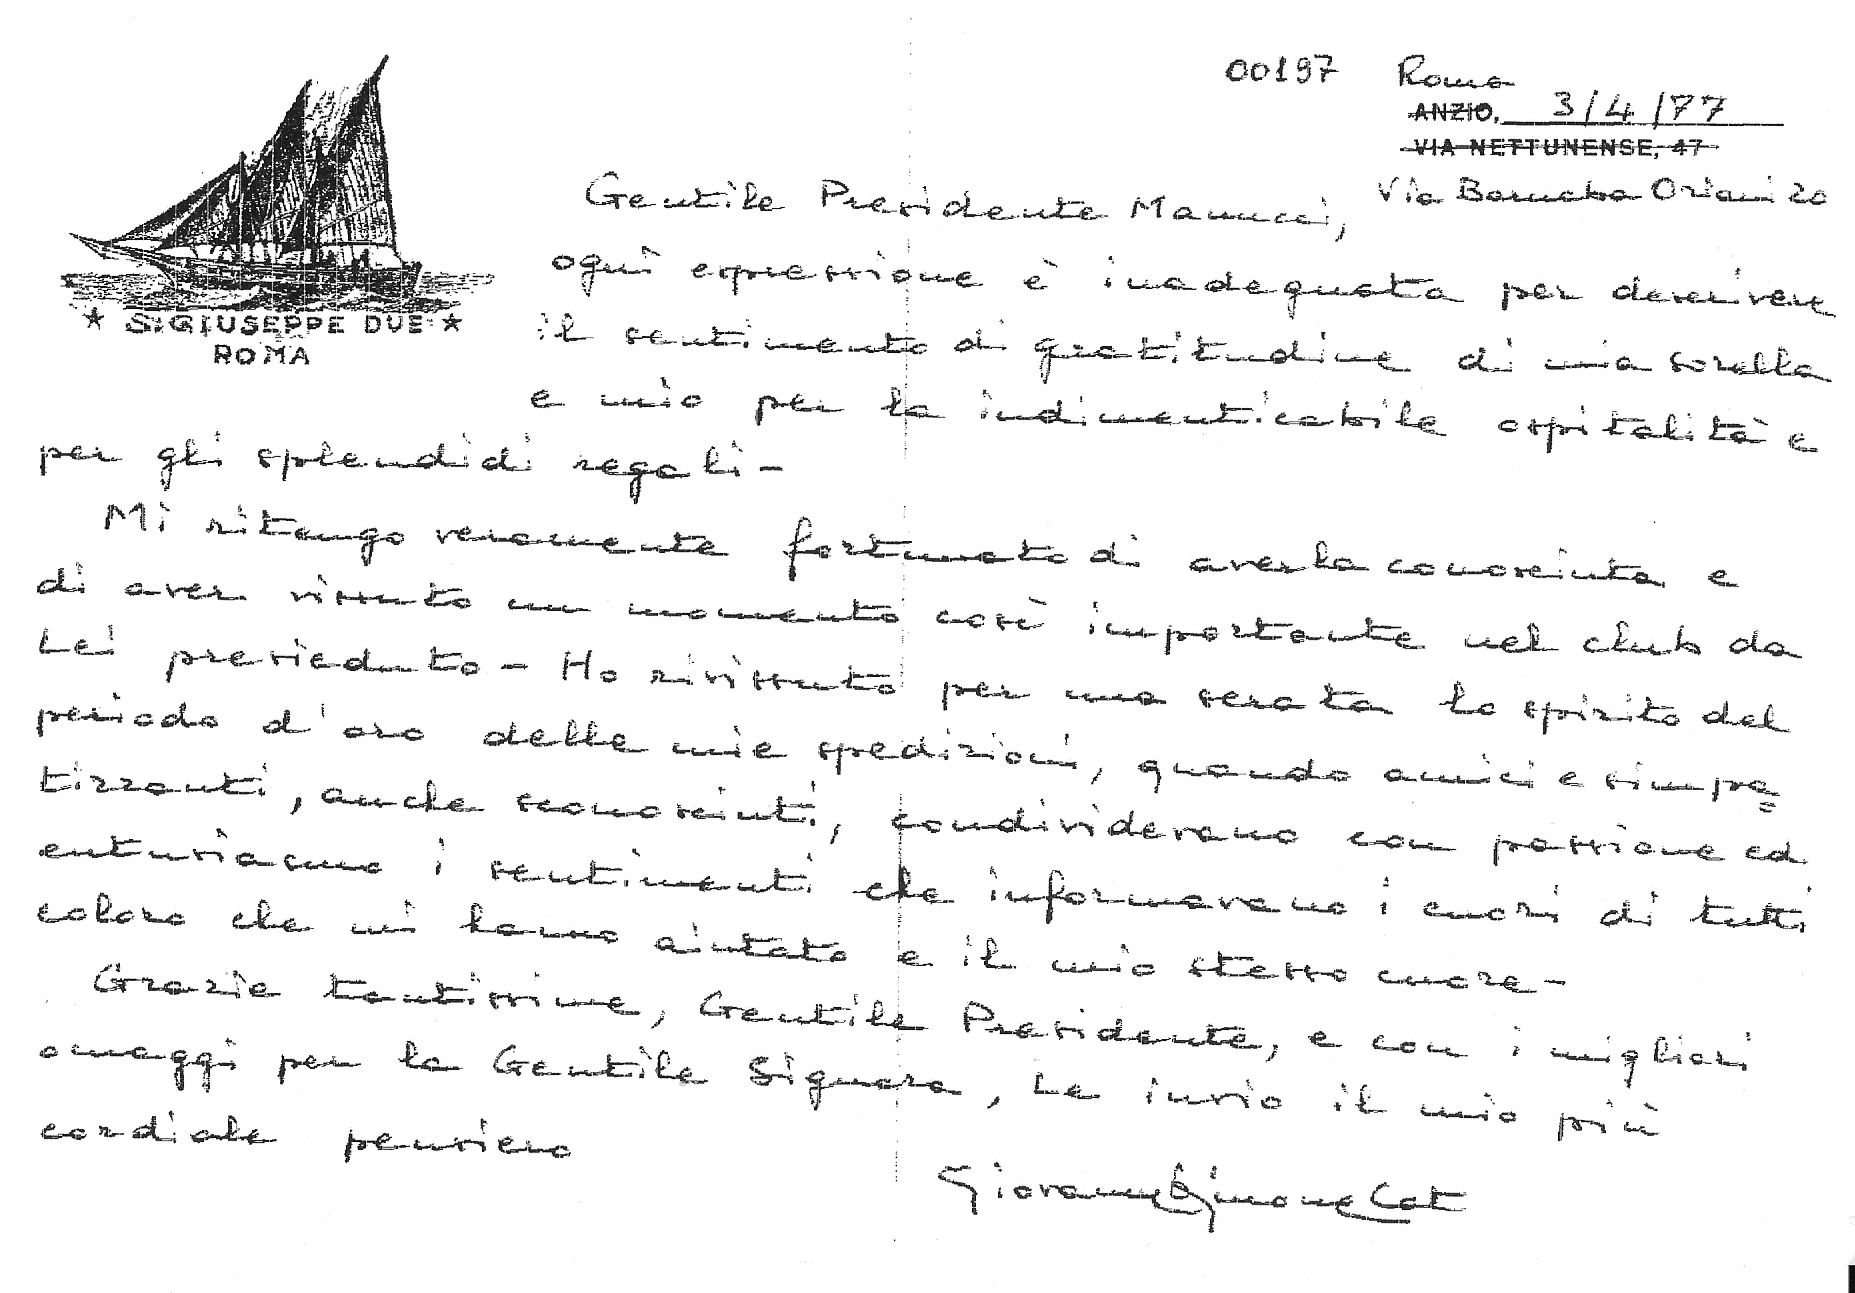 00197 Roma
ANZIO, 3/4/77
VIA NETTUNENSE, 47
Via Barnaba Oriani 20
★ S. GIUSEPPE DUE ★
ROMA
Gentile Presidente Manucci,
ogni espressione è inadeguata per descrivere
il sentimento di gratitudine di mia sorella
e mio per la indimenticabile ospitalità e
per gli splendidi regali -
Mi ritengo veramente fortunato di averla conosciuta e
di aver vissuto un momento così importante nel club da
Lei presieduto - Ho rivissuto per una serata lo spirito del
periodo d'oro delle mie spedizioni, quando amici e simpa=
tizzanti, anche sconosciuti, condividevano con passione ed
entusiasmo i sentimenti che informavano i cuori di tutti
coloro che mi hanno aiutato e il mio stesso cuore -
Grazie tantissime, Gentile Presidente, e con i migliori
omaggi per la Gentile Signora, Le invio il mio più
cordiale pensiero
Giovanni Ajmone Cat